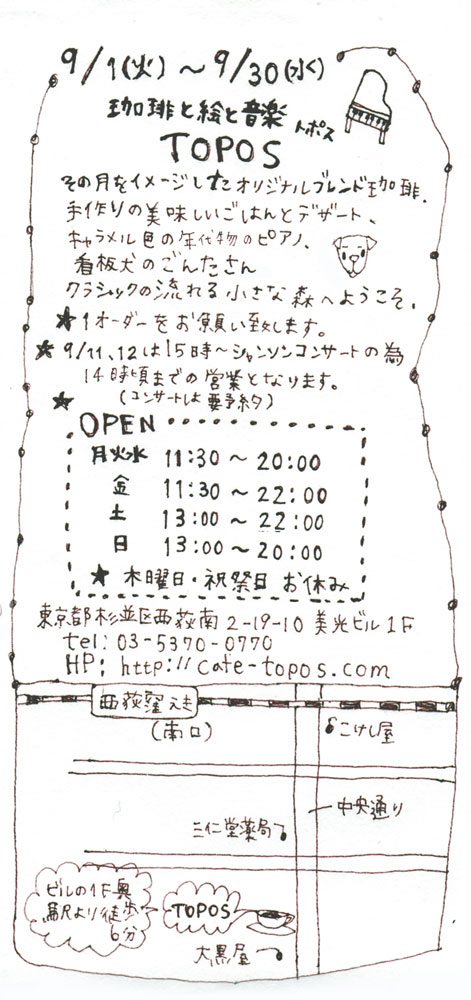 9/1(火)～9/30(水)
珈琲と絵と音楽 トポス
TOPOS
その月をイメージしたオリジナルブレンド珈琲.
手作りの美味しいごはんとデザート、
キャラメル色の年代物のピアノ、
看板犬のごんたさん
クラシックの流れる小さな森へようこそ.
★1オーダーをお願い致します。
★9/11、12は15時～シャンソンコンサートの為
14時頃までの営業となります。
★(コンサートは要予約)
OPEN
月火水 11:30～20:00
金 11:30～22:00
土 13:00～22:00
日 13:00～20:00
★木曜日・祝祭日 お休み
東京都杉並区西荻南2-19-10 美光ビル1F
tel: 03-5370-0770
HP: http://cafe-topos.com
西荻窪えき
(南口)
こけし屋
中央通り
三仁堂薬局
ビルの1F奥
駅より徒歩
6分
TOPOS
大黒屋